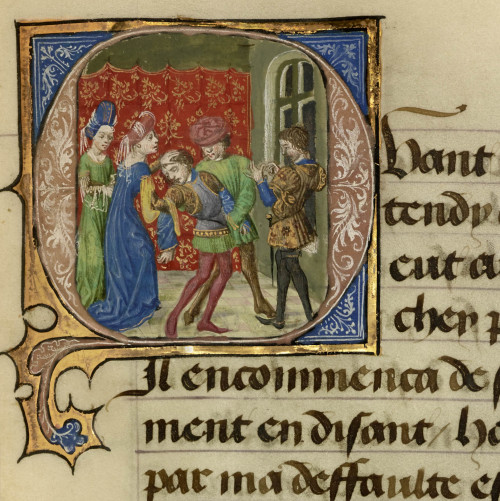 Quant
tendy
eut a
cher p
Il encommenca de s
ment en disant / he
par ma deffaulte es